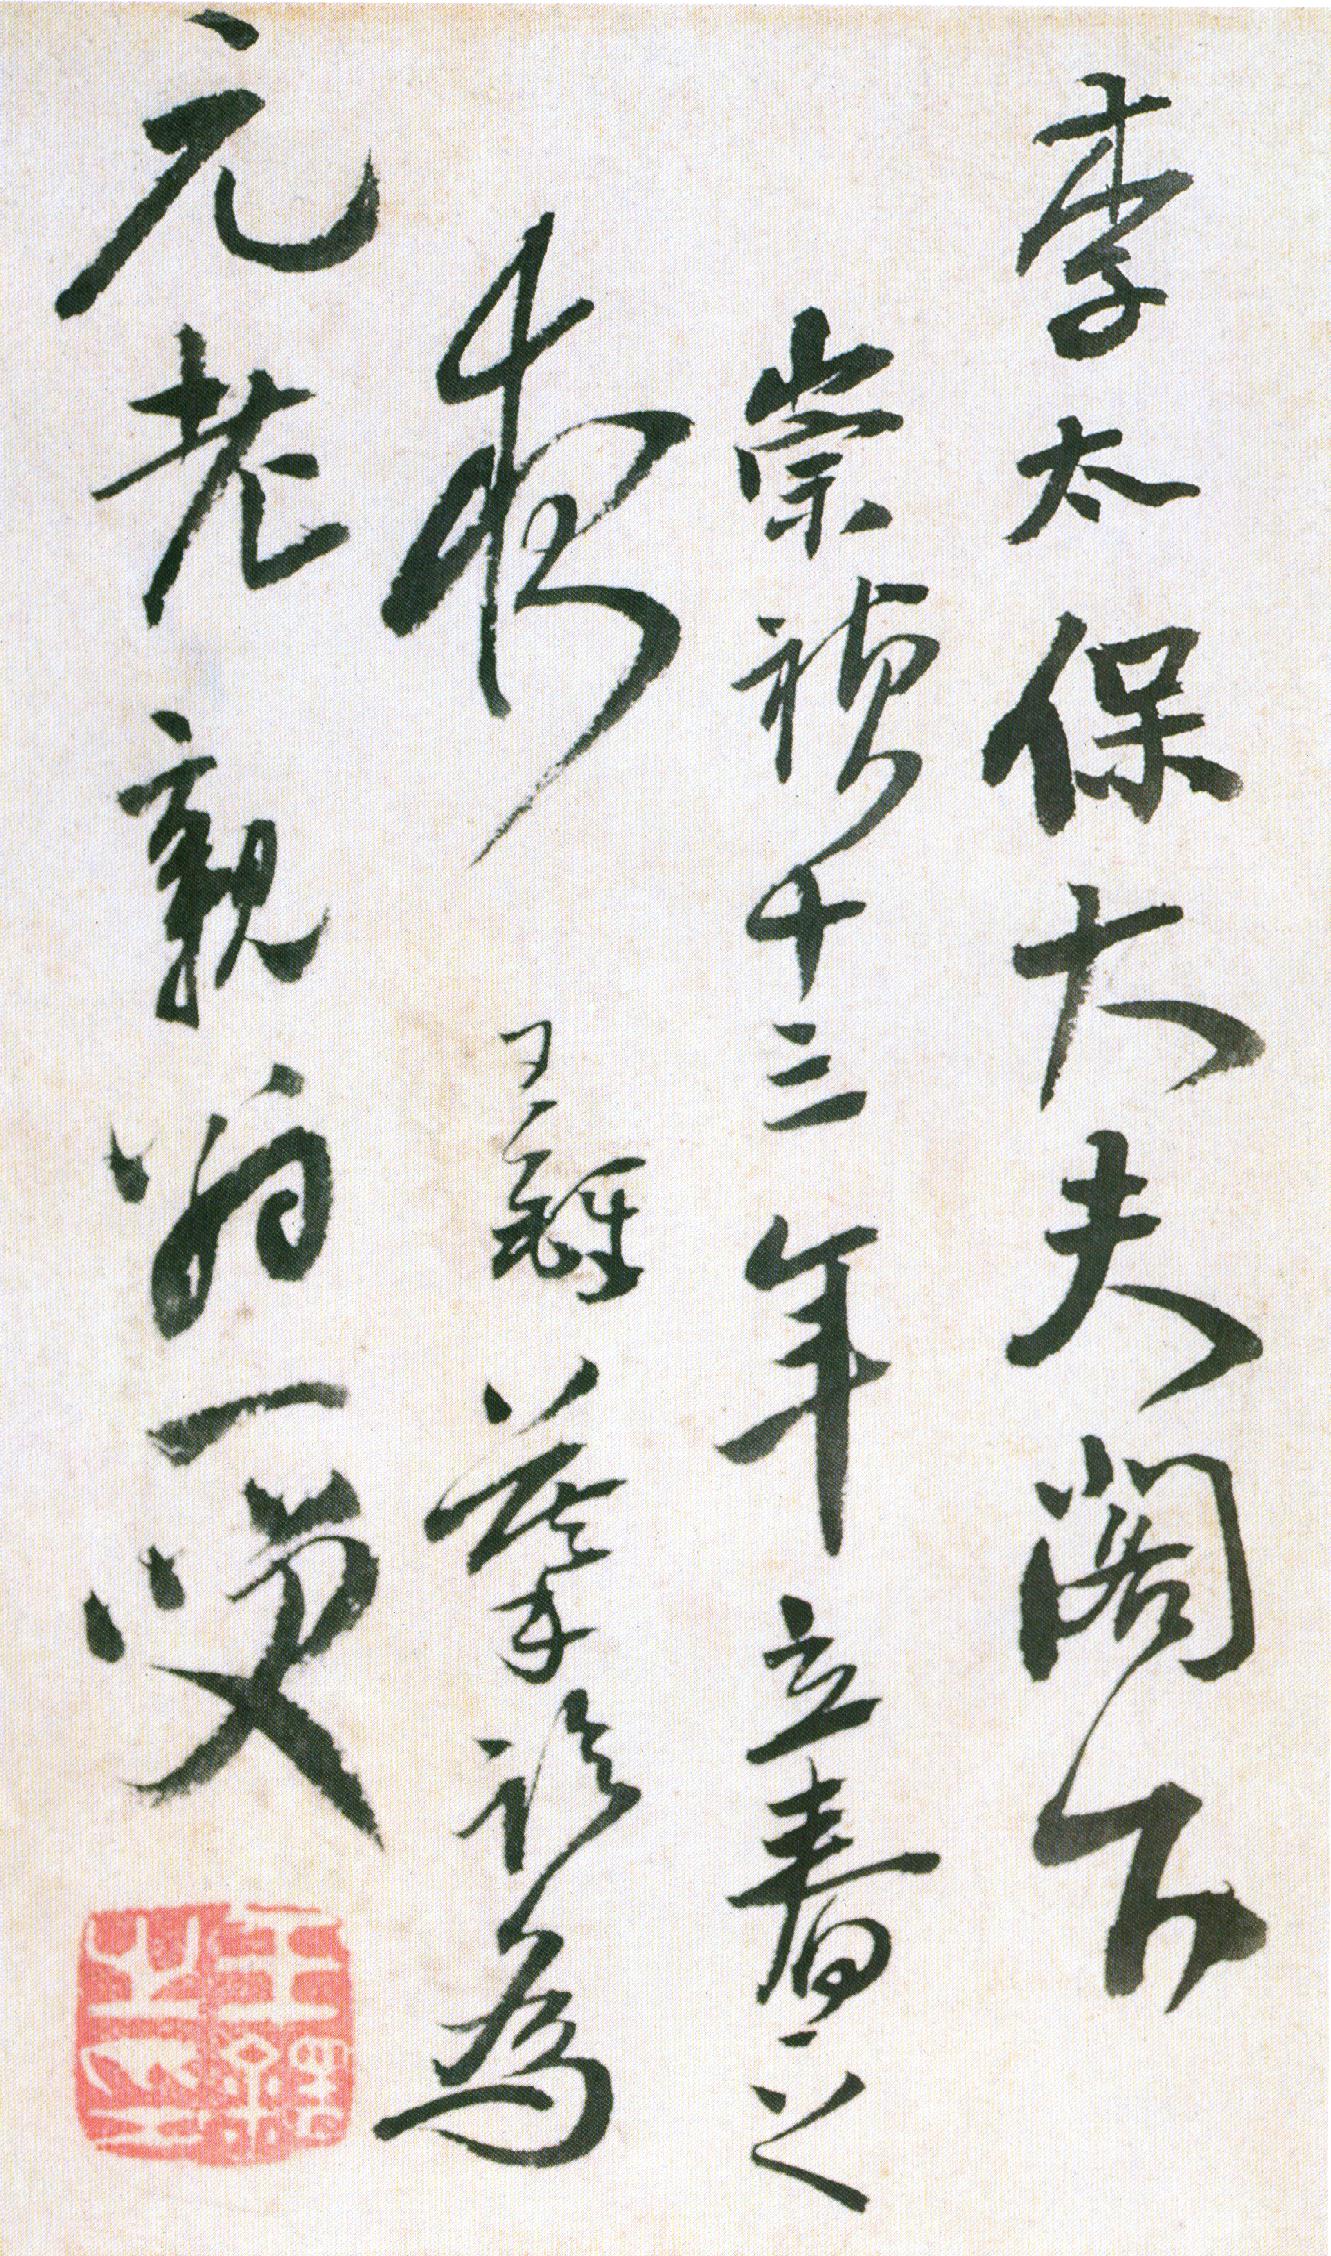 李太保大夫阁下
崇禎十三年立春之
夜王鐸摹于診為
元老親翁一笑
王鐸之印